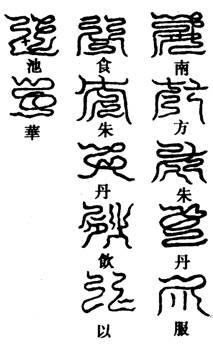 南方朱丹服
食朱丹飲以
池華